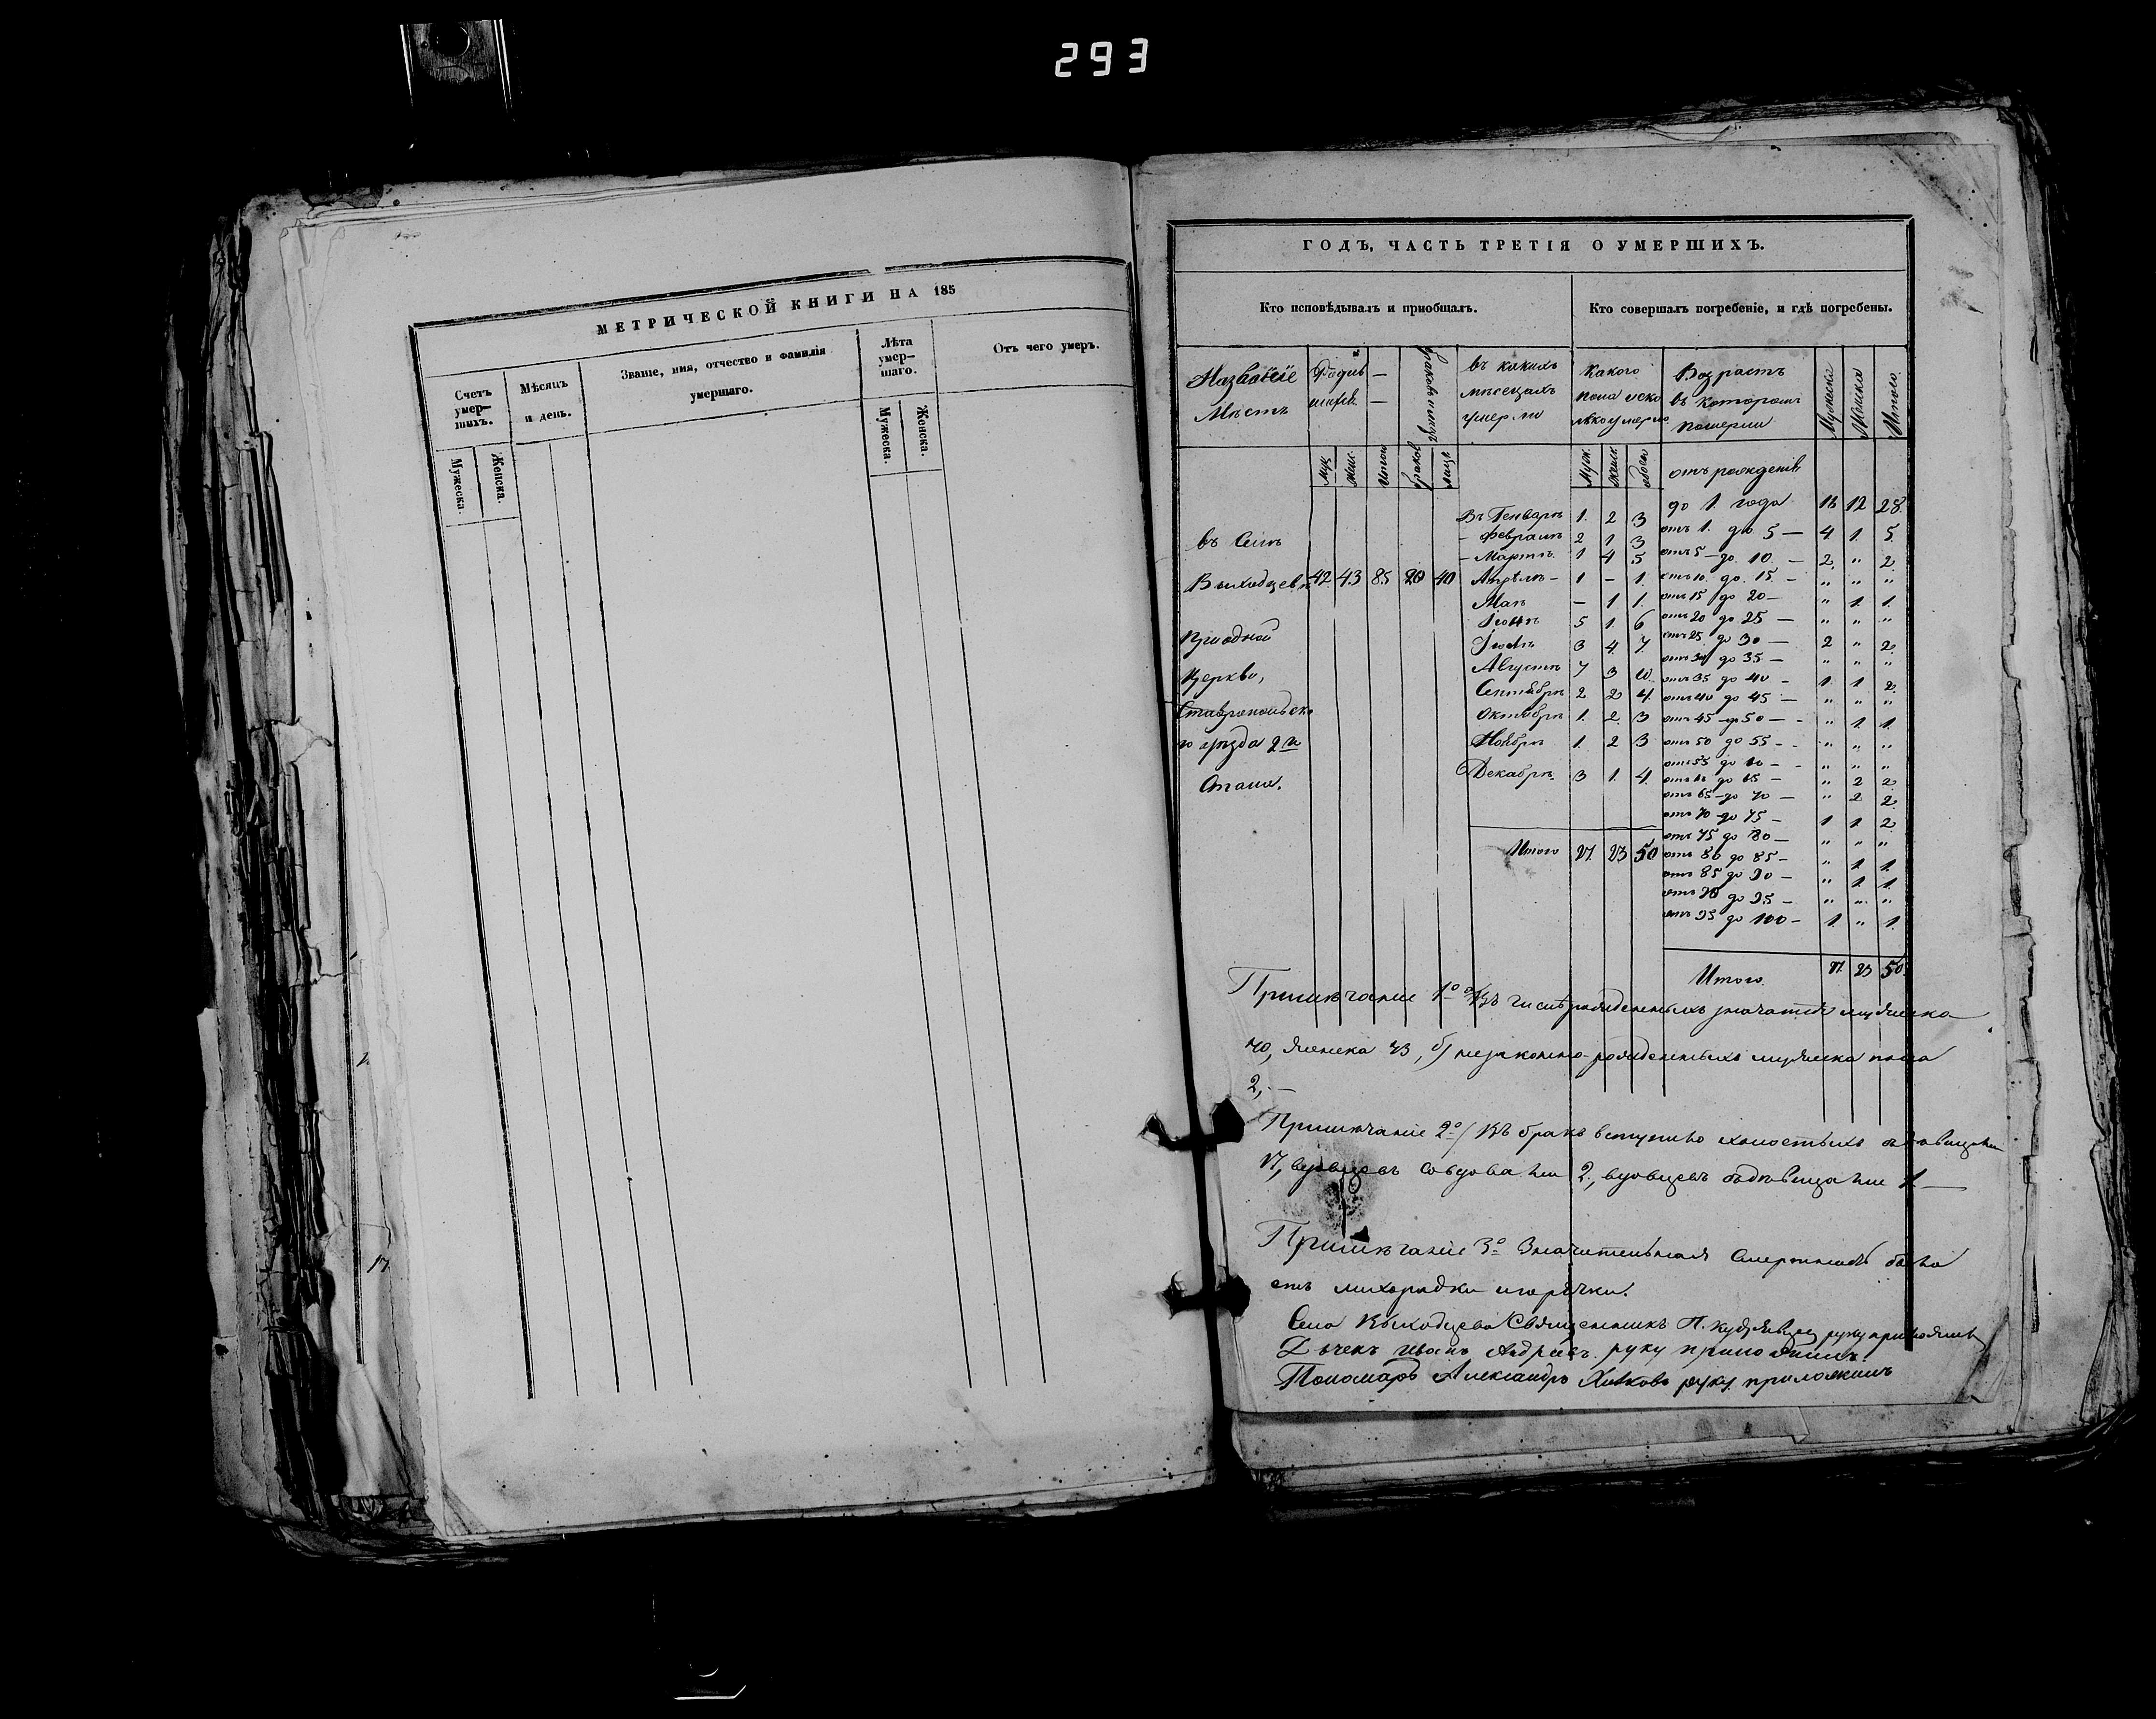 293
МЕТРИЧЕСКОЙ КНИГИ НА 185
Счетъ умер-шихъ.
Мужеска.
Женска.
Мѣсяцъ и день.
Званіе, имя, отчество и фамилія умершаго.
Лѣта умер-шаго.
Мужеска.
Женска.
Отъ чего умеръ.
ГОДЪ, ЧАСТЬ ТРЕТІЯ О УМЕРШИХЪ.
Кто исповѣдывалъ и пріобщалъ.
Кто совершалъ погребеніе, и гдѣ погребены.
Названіе Мѣстъ
въ какихъ мѣсецахъ умерли
Какого пола
Возрастъ въ которомъ померли
Мужеска
Женска
Итого
Муж. женс. Итого браков лицъ
Муж. женск обоег
отъ рожденія
до 1. года 16 12 28.
Въ Генварѣ 1. 2 3
отъ 1. до 5 — 4 1. 5.
въ Селѣ
- Февралѣ 2 1 3
отъ 5 - до 10. — 2. " 2.
- Мартѣ. 1 4 5
отъ 10. до 15. — " " "
42 43 85 20 40
Апрѣлѣ - 1 - 1.
отъ 15 до 20 - " 1. 1.
Маѣ - 1 1.
отъ 20 до 25 — " " "
Іюнѣ 5 1. 6
отъ 25 до 30 — 2 " 2.
Іюлѣ 3 4. 7.
отъ 30 до 35 — " " "
Августѣ 7 3 10.
отъ 35 до 40 - 1. 1 2.
церкви,
Сентябрѣ 2 2 4.
отъ 40 до 45 — " " "
Октябрѣ 1. 2. 3
отъ 45 - до 50 — " 1. 1.
го уѣзда 2го
Ноябрѣ 1. 2 3
отъ 50 до 55 - " " "
отъ 55 до 60 - " " "
Стана.
Декабрѣ. 3 1. 4.
отъ 60 до 65 — " 2 2.
отъ 65 - до 70 — " 2 2.
отъ 70 до 75 — 1 1 2.
отъ 75 до 80 — " " "
Итого 27. 23 50
отъ 80 до 85 — " 1 1.
отъ 85 до 90 — " 1. 1.
отъ 90 до 95 — " " "
отъ 95 до 100 - 1. " 1.
Итого. 27. 23 50.
Примѣчаніе 1о а) Въ числѣ рожденныхъ значатся мужеска
40, женска 43, б) незаконно-рожденныхъ мужеска пола
2, —
Примѣчаніе 2о/ Въ бракъ вступило холостыхъ съ дѣвицами
17, вдовцевъ со вдовами 2, вдовцевъ съ дѣвицами 1 —
Примѣчаніе 3о Значительная Смертность была
отъ лихорадки и горячки.
Села Священникъ П. Кудрявцевъ руку приложилъ
Дьячекъ Иванъ Андреевъ. руку приложилъ.
Пономарь Александръ руку приложилъ